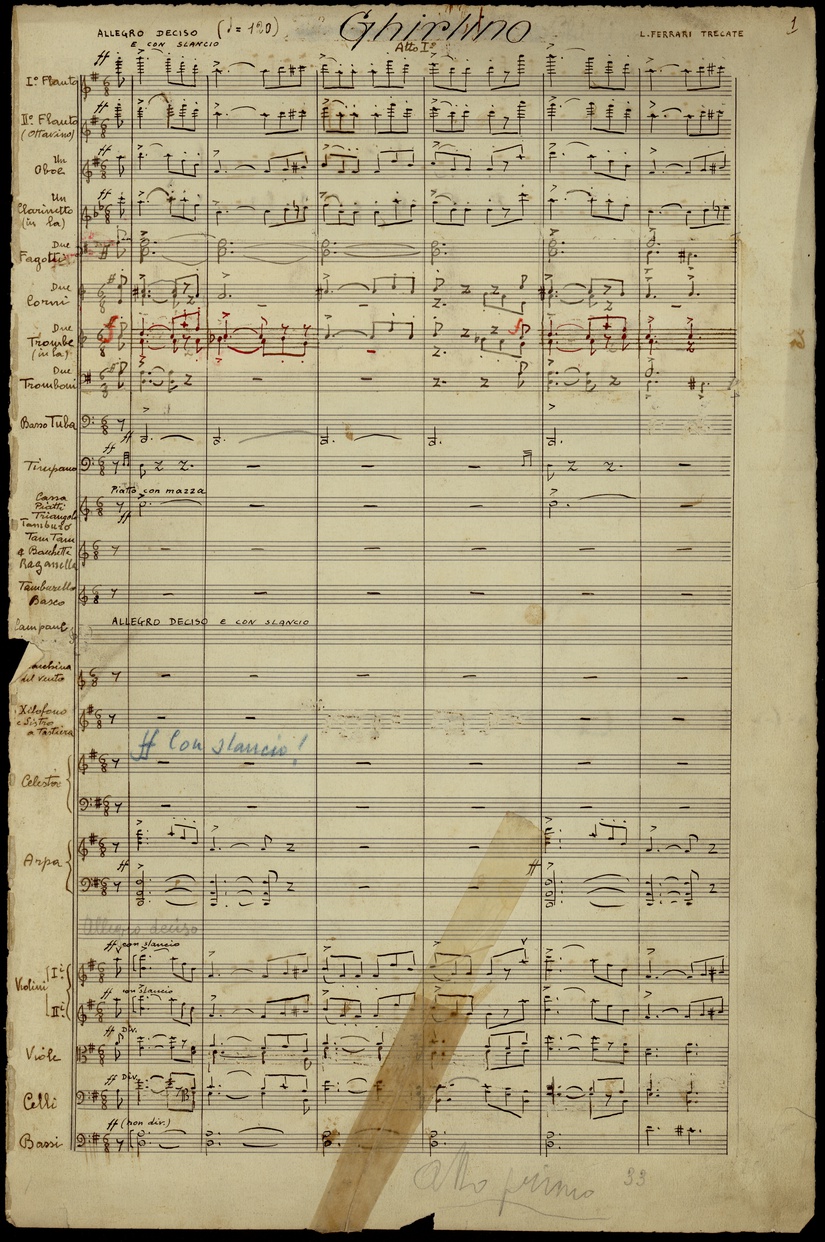 Ghirlino
ALLEGRO DECISO (♩ = 120)
E CON SLANCIO
Atto Iº
L. FERRARI TRECATE
1
ff
Iº Flauto
ff
IIº Flauto
(Ottavino)
ff
Un
Oboe
ff
Un
Clarinetto
(in la)
Due
Fagotti
Due
Corni
f
f
Due
Trombe
(in la)
Due
Tromboni
Basso Tuba
ff
Timpano
Piatto con mazza
ff
Cassa
Piatti
Triangolo
Tamburo
Tam Tam
4 Bacchette
Raganella
Tamburello
Basco
ALLEGRO DECISO E CON SLANCIO
Campane
del vento
Xilofono
e Sistro
a Tastiera
ff Con slancio!
Celesta
Arpa
ff
ff
Allegro deciso
ff con slancio
Violini Iⁱ
con slancio
IIⁱ
ff Div.
Viole
ff Div.
Celli
ff (non div.)
Bassi
Atto primo 33